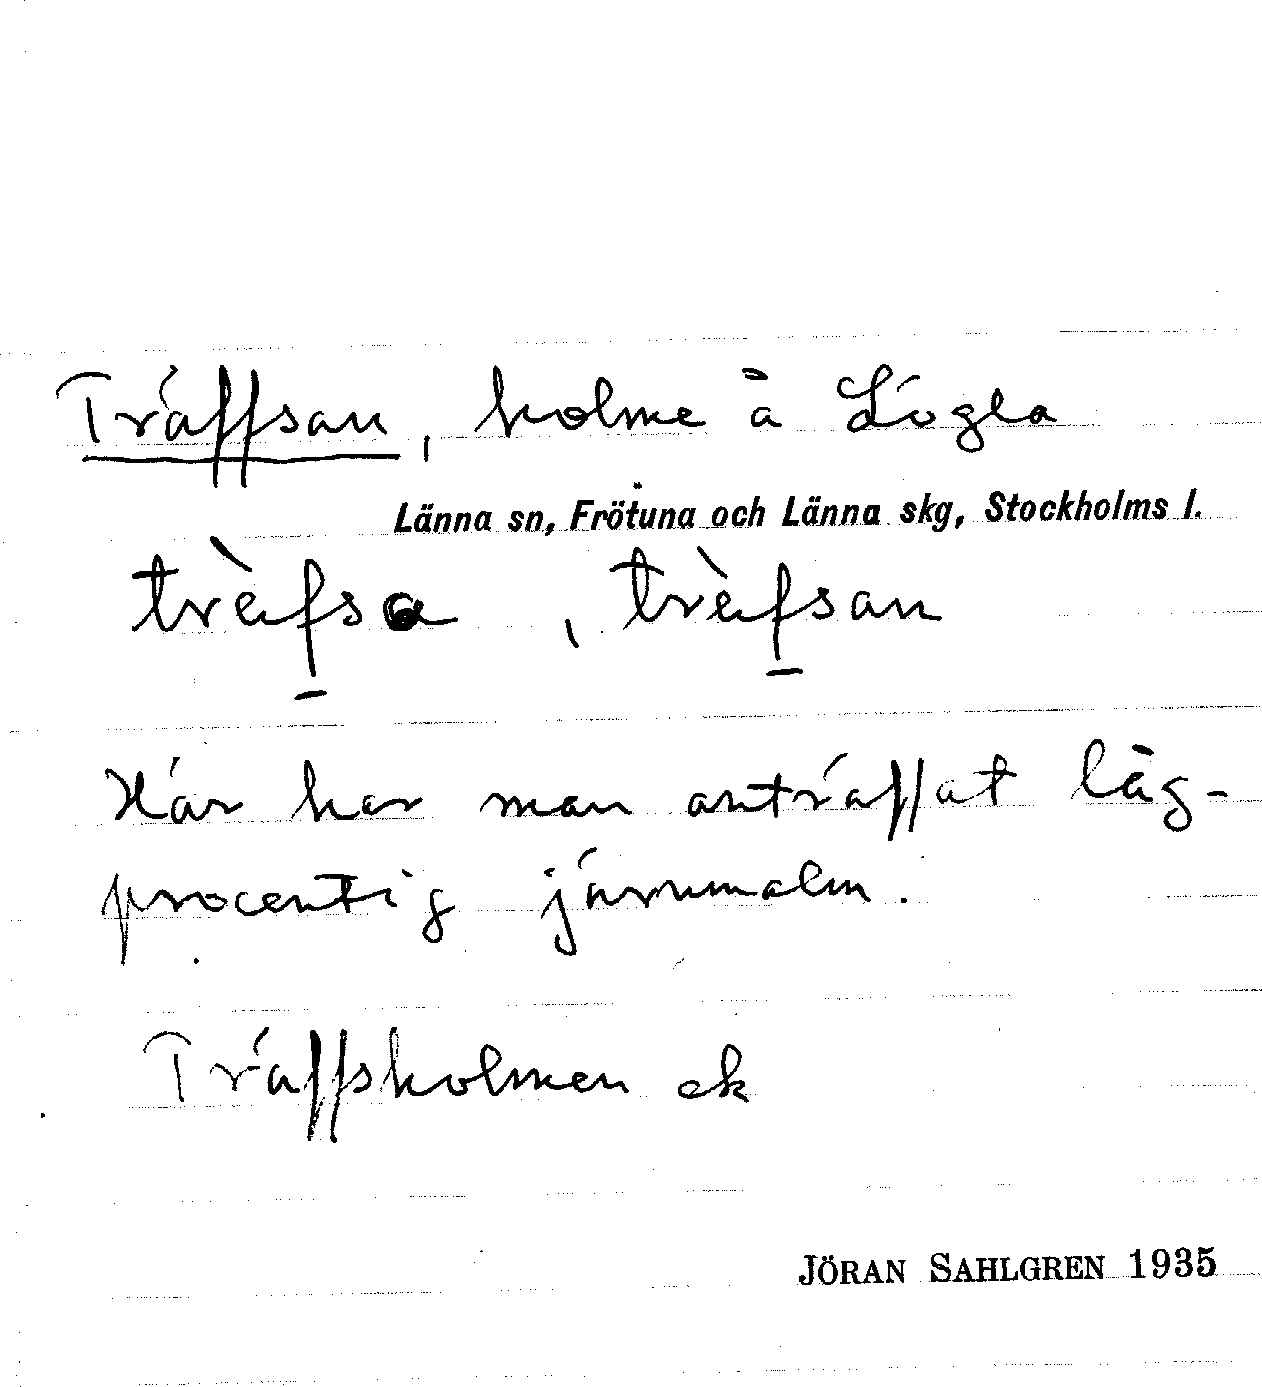 Träffsan, holme å Lögla
Länna sn, Frötuna och Länna skg, Stockholms l.
träfsa, träfsan
Här har man anträffat låg-
procentig järnmalm.
Träffsholmen ek
JÖRAN SAHLGREN 1935